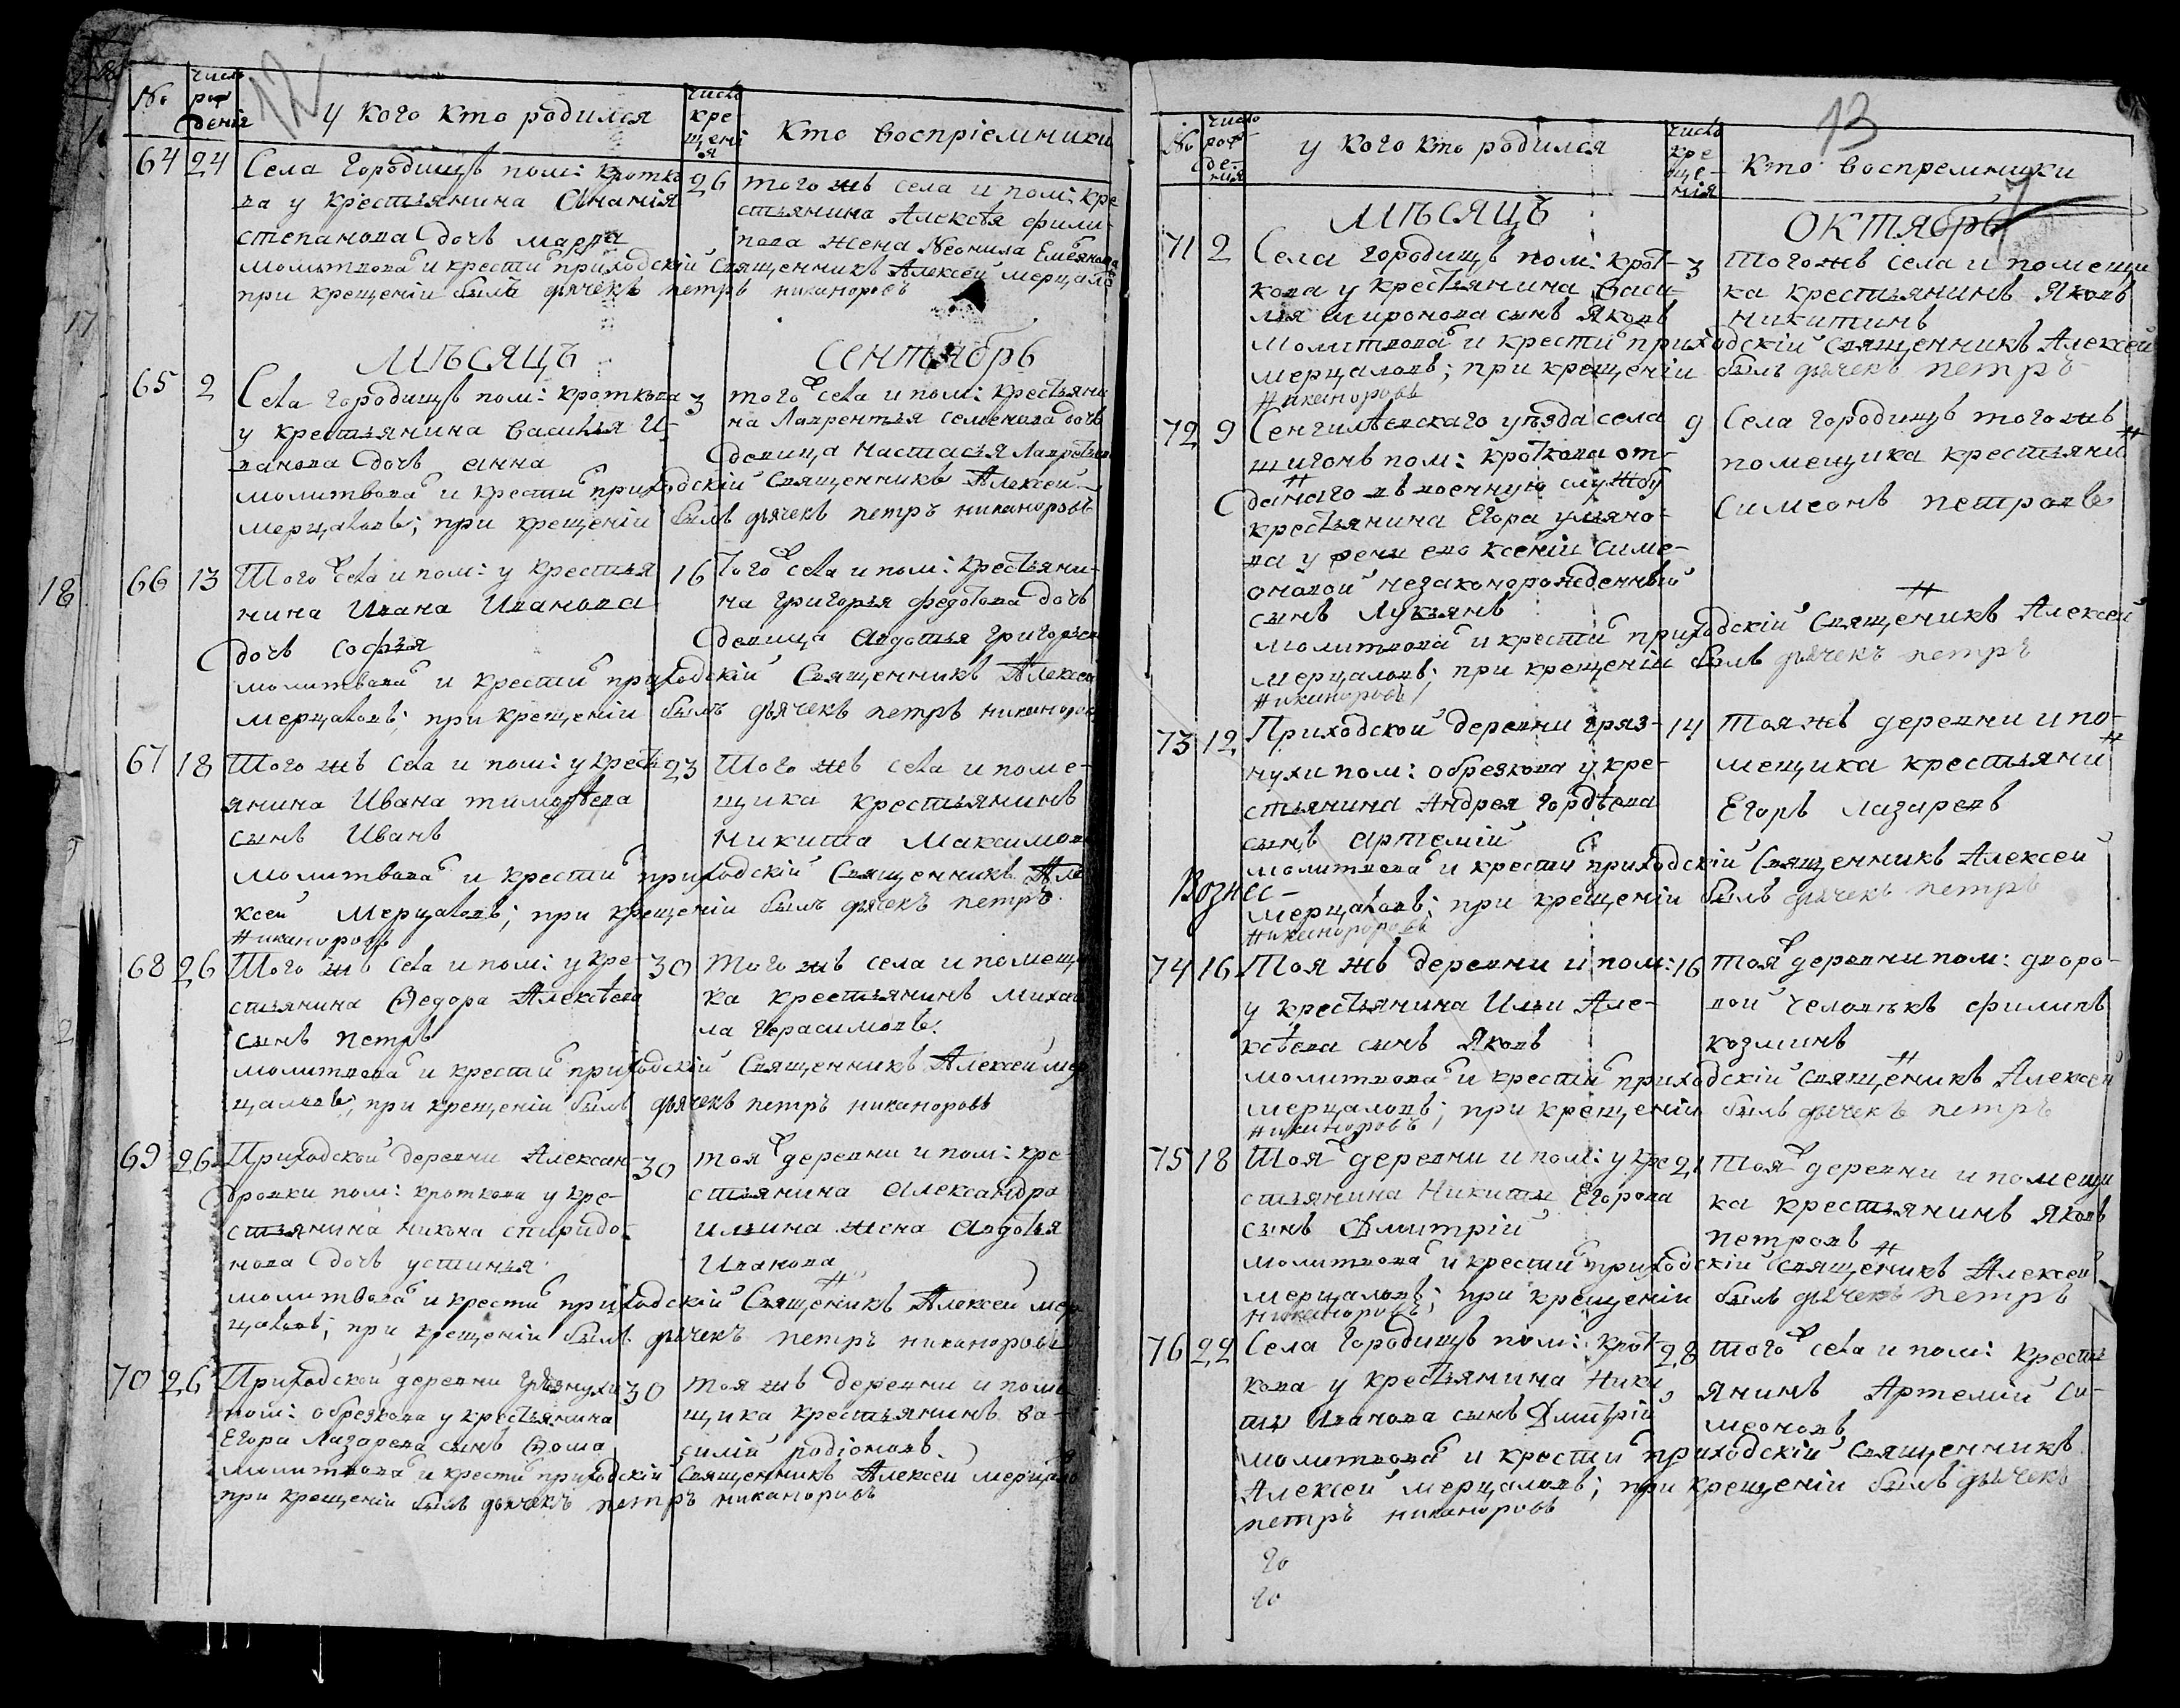 12
№
число рож
дения
у кого кто родился
число
кре
щені
я
кто воспріемники
64 24 Села Городищъ пом: Кротко
ва у крестьянина Ананія
степанова дочь марфа
26 того жъ села и пом: кре
стьянина Алексѣя фили-
пова жена Неонила Емельянова
молитвовалъ и крестилъ приходскій Священникъ Алексей мерцало
при крещеніи былъ дьячекъ петръ никаноровъ
17
мѣсяцъ сентябрь
65 2 Села городищъ пом: кроткова
у крестьянина василья И-
ванова дочь анна
3 того села и пом: крестьяни
на Лаврентья семенова дочь
девица Настасья Лаврентьев
молитвовалъ и крестилъ приходскій Священникъ Алексей
мерцаловъ; при крещеніи былъ дьячекъ петръ никаноровъ
18
66 13 Того села и пом: у крестья
нина Ивана Иванова
дочь софья
16 Того села и пом: крестьяни-
на григорья федотова дочь
девица Авдотья Григорьев
молитвовалъ и крестилъ приходскій Священникъ Алексей
мерцаловъ; при крещеніи былъ дьячекъ петръ никаноров
67 18 Того жъ села и пом: у кресть
янина Ивана тимофѣева
сынъ Иванъ
23 Того жъ села и поме-
щика крестьянинъ
никита Максимов
молитвовалъ и крестилъ приходскій Священникъ Але
ксей Мерцаловъ; при крещеніи былъ дьячекъ петръ
никаноровъ
68 26 Того жъ села и пом: у кре-
стьянина Федора Алексѣева
сынъ петръ
30 того жъ села и помещи
ка крестьянинъ михай
ла герасимовъ
молитвовалъ и крестилъ приходскій Священникъ Алексей мер
цаловъ; при крещеніи былъ дьячекъ петръ никаноровъ
69 26 Приходской деревни Алексан-
дровки пом: кроткова у кре-
стьянина никона спиридо-
нова дочь устинья
30 тоя деревни и пом: кре-
стьянина александра
ильина жена авдотья
Иванова
молитвовалъ и крестилъ приходскій Священикъ Алексей мер
цаловъ; при крещеніи былъ дьячекъ петръ никаноровъ
70 26 Приходской деревни грязнухи
пом: обрезкова у крестьянина
Егора Лазарева сынъ Фома
30 тоя жъ деревни и поме
щика крестьянинъ ва-
силій родіоновъ
молитвовалъ и крестилъ приходскій Священникъ Алексей мерцало
при крещеніи былъ дьячекъ петръ никаноровъ
13
№
число
рож
де-
нія
у кого кто родился
число
кре
ще-
нія
кто воспремники
7
мѣсяцъ октябрь
71 2 Села городищъ пом: крот-
кова у крестьянина васи-
лія миронова сынъ Яковъ
3 Того жъ села и помещи
ка крестьянинъ Яковъ
никитинъ
молитвовалъ и крестилъ приходскій Священникъ Алексей
мерцаловъ; при крещеніи былъ дьячекъ петръ
никаноровъ
72 9 Сенгилѣевскаго уѣзда села
шигонъ пом: кроткова от-
данаго въ военную службу
крестьянина Егора ульяно-
ва у жены ево ксеніи симе-
оновой незаконорожденный
сынъ Лукьянъ
9 Села городищъ того жъ
помещика крестьяни
Симеонъ петровъ
молитвовалъ и крестилъ приходскій Священикъ Алексей
мерцаловъ; при крещеніи былъ дьячекъ петръ
никаноровъ
73 12 Приходской деревни гряз-
нухи пом: обрезкова у кре-
стьянина Андрея гордѣева
сынъ артемій
14 тоя жъ деревни и по-
мещика крестьяни
Егоръ лазаревъ
молитвовалъ и крестилъ приходскій Священникъ Алексей
Вознес-
мерцаловъ; при крещеніи былъ дьячекъ петръ
никаноровъ
74 16 Тоя жъ деревни и пом:
у крестьянина Ильи Але-
ксѣева сынъ Яковъ
16 тоя деревни пом: дворо-
вой человѣкъ филипъ
козминъ
молитвовалъ и крестилъ приходскій Священикъ Алексей
мерцаловъ; при крещеніи былъ дьячекъ петръ
никаноровъ
75 18 Тоя деревни и пом: у кре
стьянина Никиты Егорова
сынъ Дмитрій
21 Тоя деревни и помещи
ка крестьянинъ Яковъ
петровъ
молитвовалъ и крестилъ приходскій Священикъ Алексей
мерцаловъ; при крещеніи былъ дьячекъ петръ
никаноровъ
76 22 Села Городищъ пом: крот
кова у крестьянина Ники
ты Иванова сынъ Дмитрій
28 того села и пом: кресть
янинъ Артемій Си-
меоновъ
молитвовалъ и крестилъ приходскій Священникъ
Алексей мерцаловъ; при крещеніи былъ дьячекъ
петръ никаноровъ